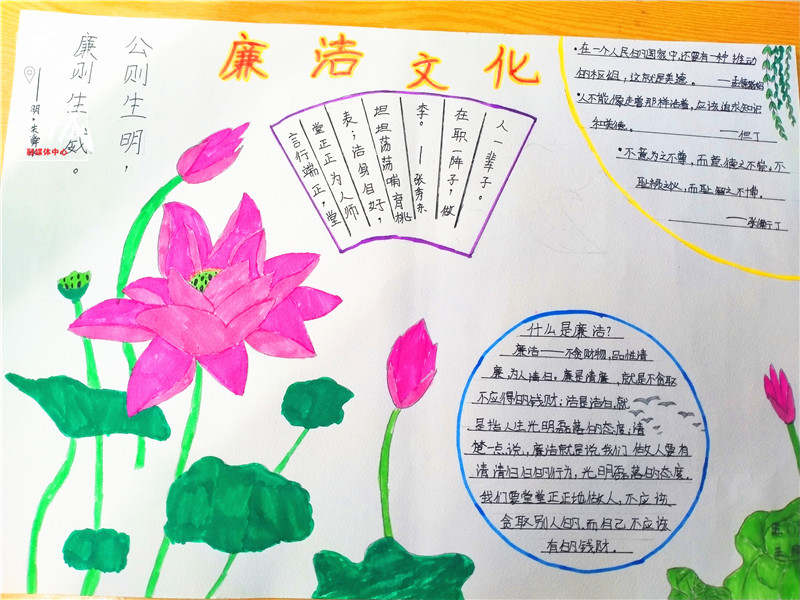 廉洁文化
公则生明，
廉则生威。
——明·朱舜
融媒体中心
人一辈子。
在职一阵子，做
李。——张秀东
坦坦荡荡哺育桃
表；洁身自好，
堂正正为人师
言行端正，堂
·在一个人民的国家中，还要有一种推动
的枢纽，这就是美德。——孟德斯鸠
·人不能像走兽那样活着，应该追求知识
和美德。——但丁
·不患位之不尊，而患德之不崇，不
耻禄之
，而耻智之不博。
——张衡
什么是廉洁？
廉洁——不贪财物，品性清
廉，为人清白。廉是清廉，就是不贪取
不应得的钱财；洁是洁白，就
是指人生光明磊落的态度，清
楚一点说，廉洁就是说我们做人要有
清清白白的行为，光明磊落的态度。
我们要堂堂正正地做人，不应该
贪取别人的，而自己不应该
有的钱财。